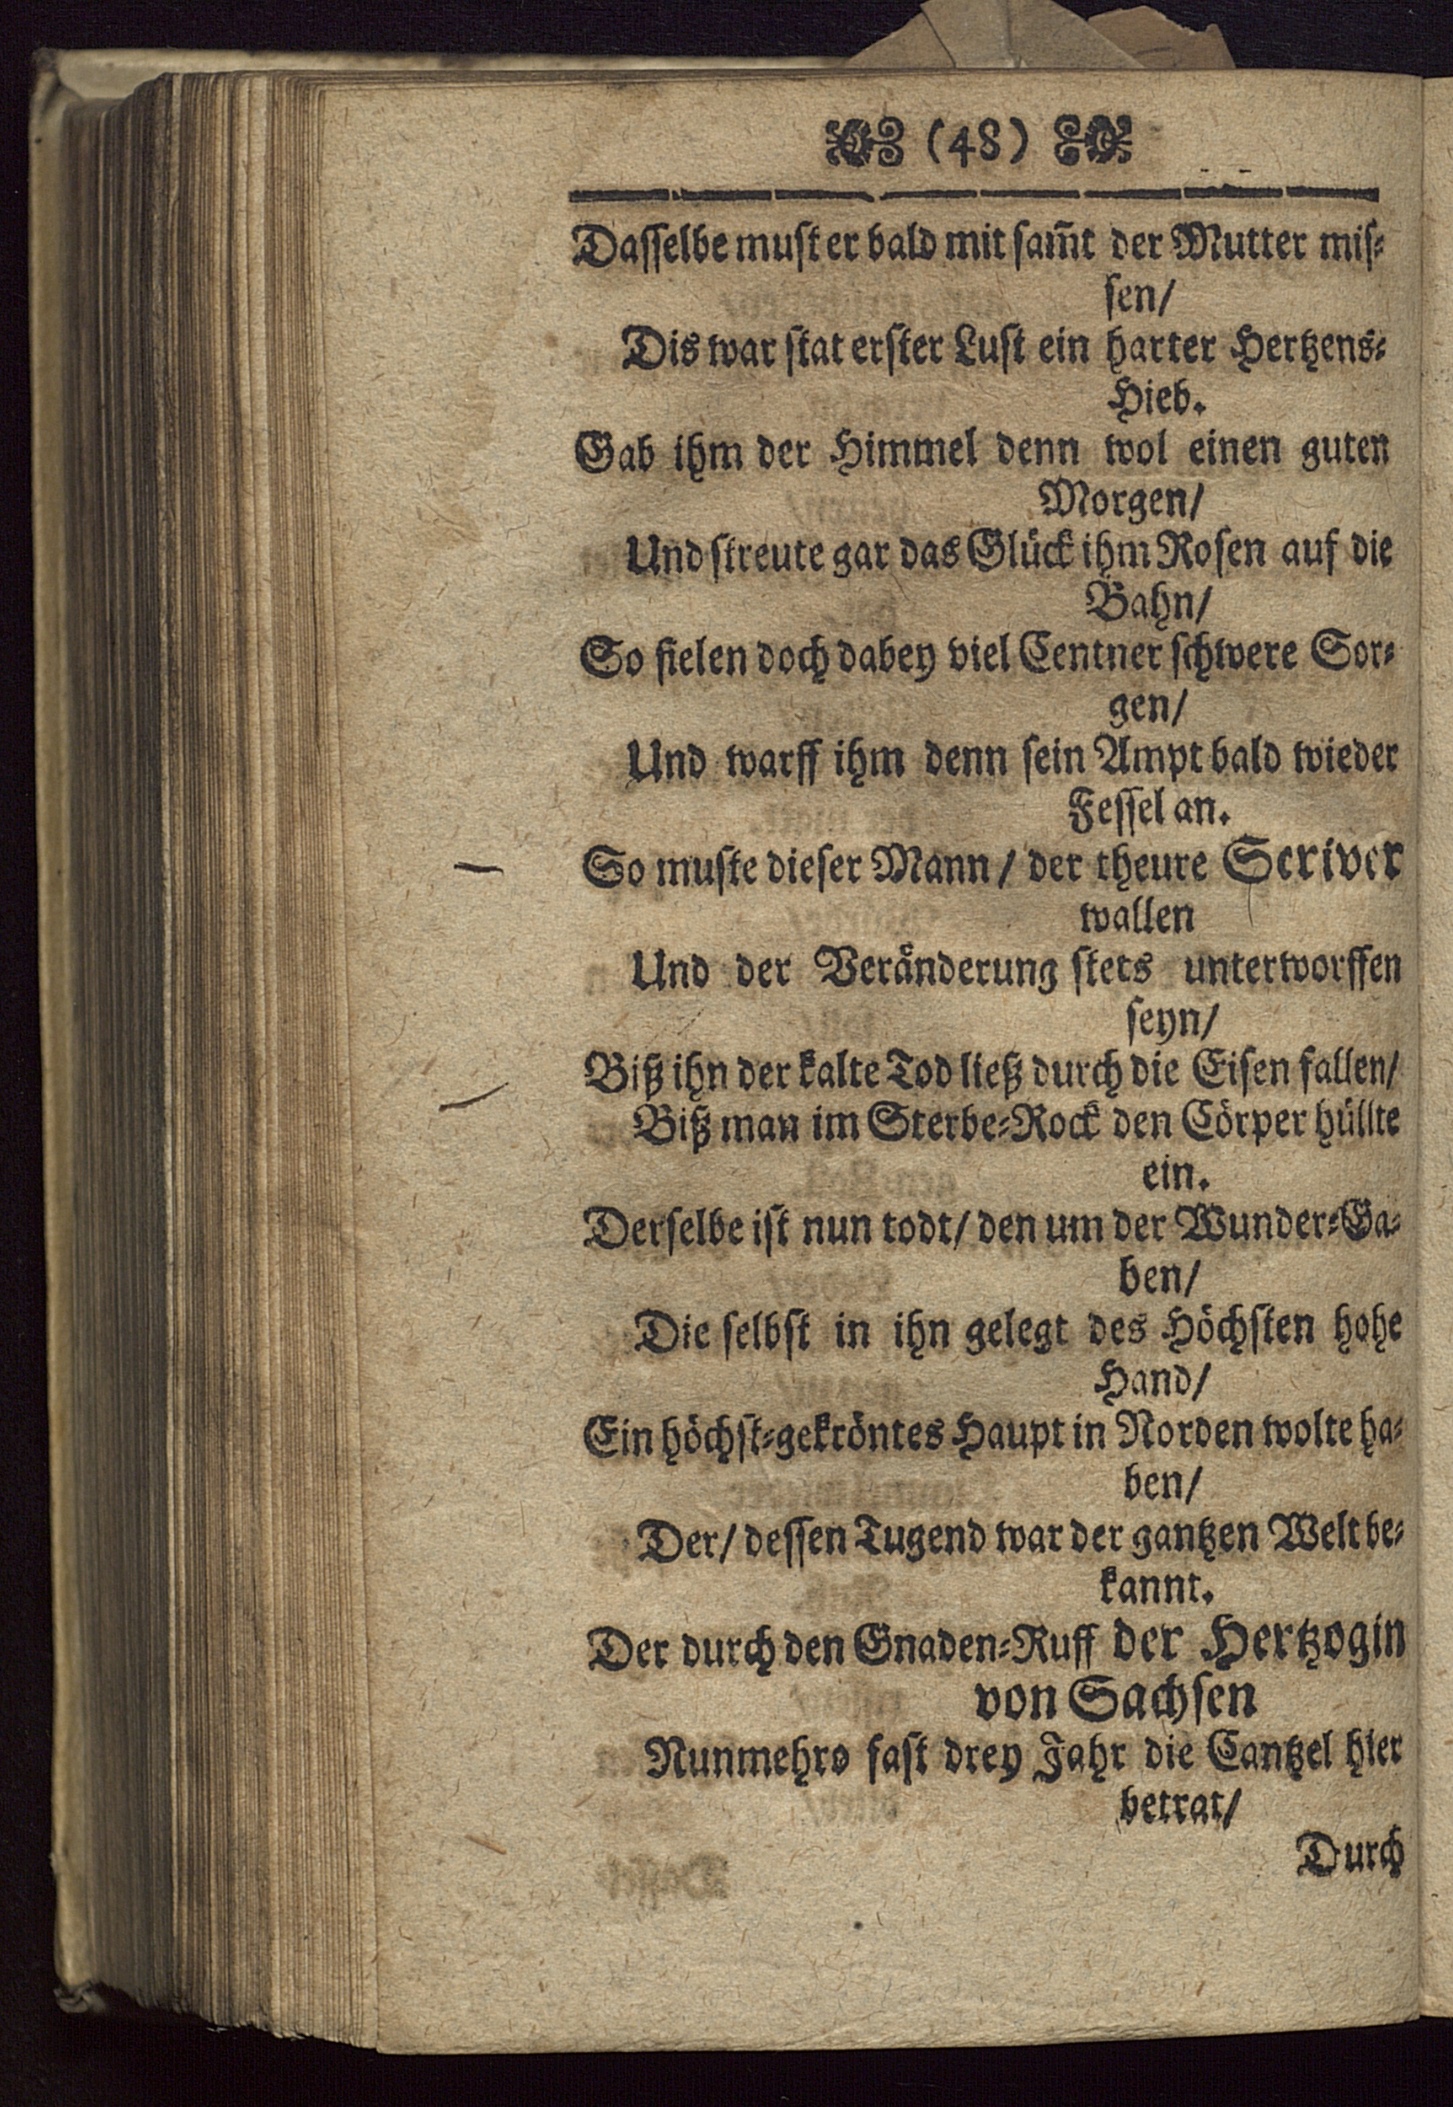 (48)
Dasselbe must er bald mit sam̃t der Mutter mis⸗
sen/
Dis war stat erster Lust ein harter Hertzens⸗
Hieb.
Gab ihm der Himmel denn wol einen guten
Morgen/
Und streute gar das Glück ihm Rosen auf die
Bahn/
So fielen doch dabey viel Centner schwere Sor⸗
gen/
Und warff ihm denn sein Ampt bald wieder
Fessel an.
So muste dieser Mann / der theure Scriver
wallen
Und der Veränderung stets unterworffen
seyn/
Biß ihn der kalte Tod ließ durch die Eisen fallen/
Biß man im Sterbe⸗Rock den Cörper hüllte
ein.
Derselbe ist nun todt/ den um der Wunder⸗Ga⸗
ben/
Die selbst in ihn gelegt des Höchsten hohe
Hand/
Ein höchst⸗gekröntes Haupt in Norden wolte ha⸗
ben/
Der/ dessen Tugend war der gantzen Welt be⸗
kannt.
Der durch den Gnaden⸗Ruff der Hertzogin
von Sachsen
Nunmehro fast drey Jahr die Cantzel hier
betrat/
Durch